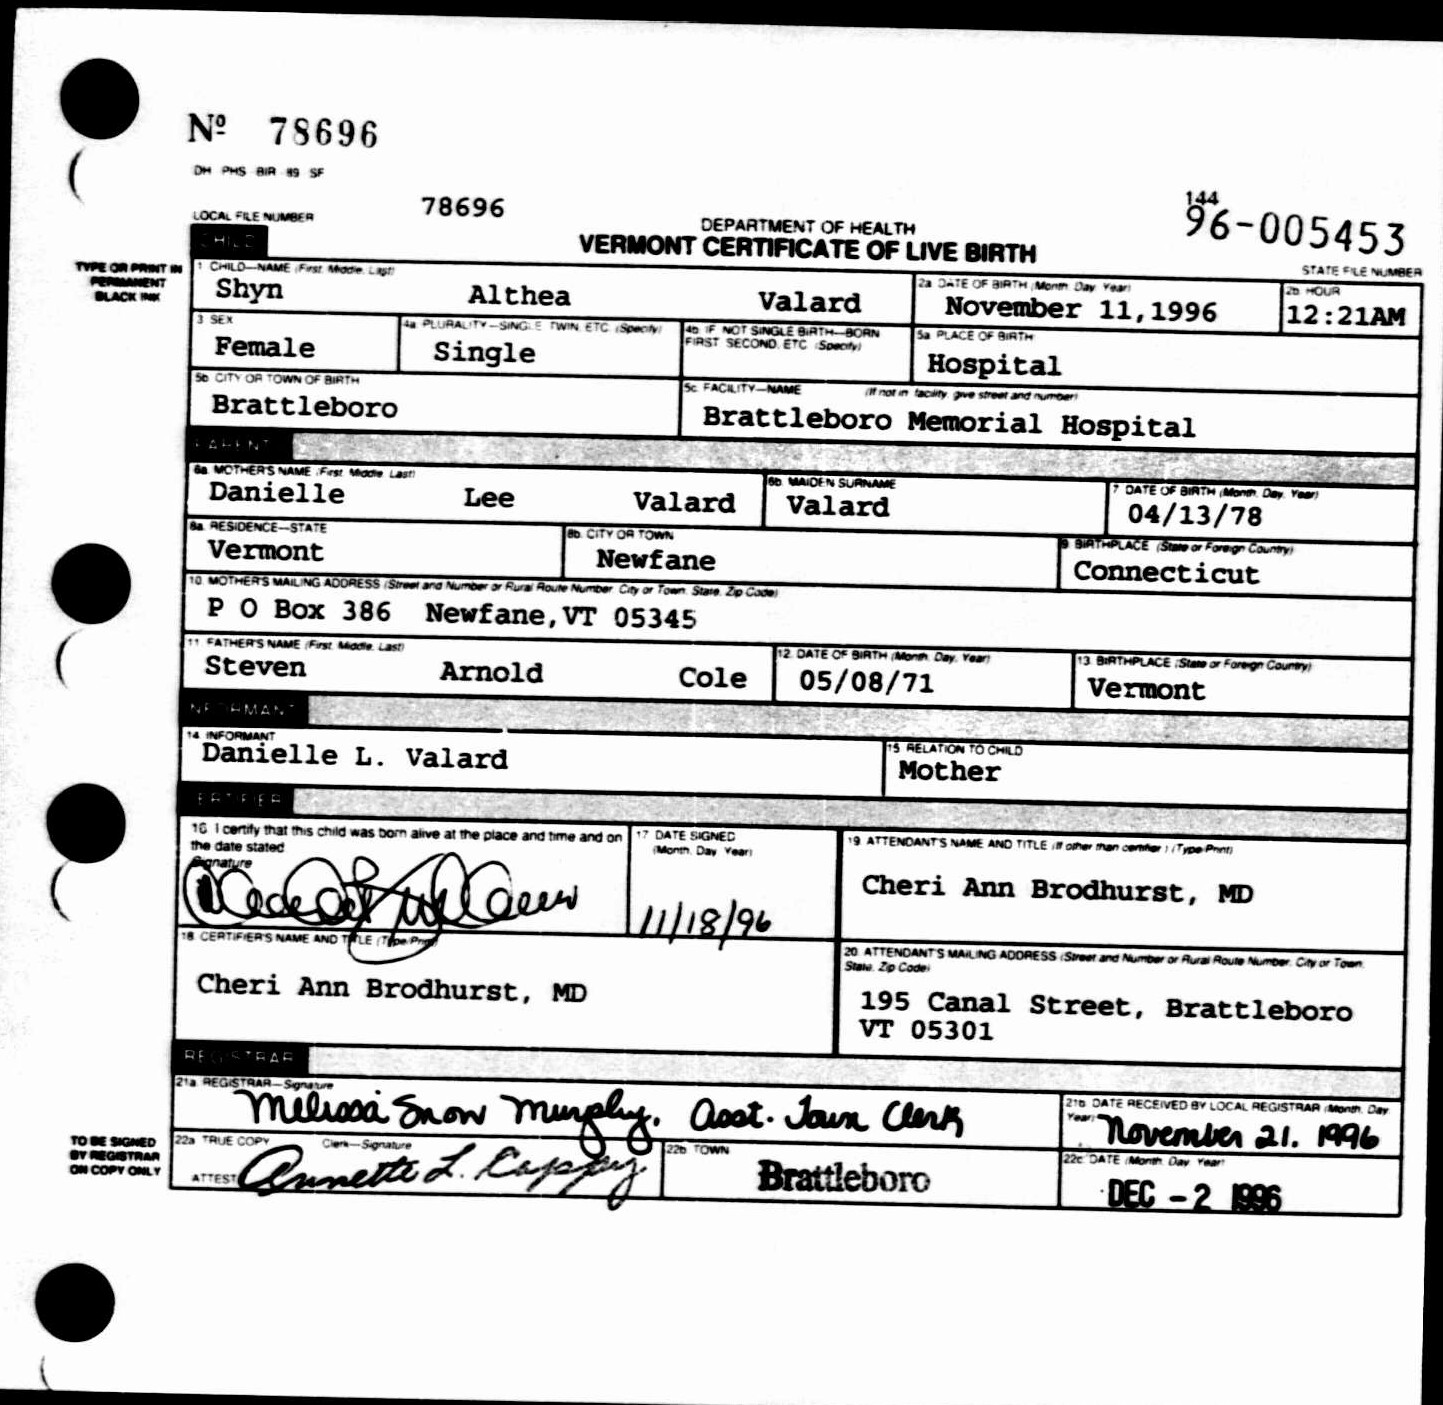 Nº 78696
DH PHS BIR 89 SF
LOCAL FILE NUMBER 78696
144
96-005453
DEPARTMENT OF HEALTH
VERMONT CERTIFICATE OF LIVE BIRTH
STATE FILE NUMBER
CHILD
TYPE OR PRINT IN
PERMANENT
BLACK INK
1 CHILD—NAME (First, Middle, Last)
Shyn Althea Valard
2a DATE OF BIRTH (Month, Day, Year)
November 11,1996
2b. HOUR
12:21AM
3 SEX
Female
4a PLURALITY—SINGLE, TWIN, ETC. (Specify)
Single
4b IF NOT SINGLE BIRTH—BORN
FIRST, SECOND, ETC. (Specify)
5a PLACE OF BIRTH
Hospital
5b. CITY OR TOWN OF BIRTH
Brattleboro
5c. FACILITY—NAME (If not in facility, give street and number)
Brattleboro Memorial Hospital
PARENT
6a. MOTHER'S NAME (First, Middle, Last)
Danielle Lee Valard
6b. MAIDEN SURNAME
Valard
7 DATE OF BIRTH (Month, Day, Year)
04/13/78
8a. RESIDENCE—STATE
Vermont
8b. CITY OR TOWN
Newfane
9. BIRTHPLACE (State or Foreign Country)
Connecticut
10. MOTHER'S MAILING ADDRESS (Street and Number or Rural Route Number, City or Town, State, Zip Code)
P O Box 386 Newfane,VT 05345
11. FATHER'S NAME (First, Middle, Last)
Steven Arnold Cole
12. DATE OF BIRTH (Month, Day, Year)
05/08/71
13. BIRTHPLACE (State or Foreign Country)
Vermont
INFORMANT
14. INFORMANT
Danielle L. Valard
15 RELATION TO CHILD
Mother
CERTIFIER
16. I certify that this child was born alive at the place and time and on
the date stated
Signature
17 DATE SIGNED
(Month, Day, Year)
11/18/96
19. ATTENDANT'S NAME AND TITLE (If other than certifier) (Type/Print)
Cheri Ann Brodhurst, MD
18. CERTIFIER'S NAME AND TITLE (Type/Print)
Cheri Ann Brodhurst, MD
20. ATTENDANT'S MAILING ADDRESS (Street and Number or Rural Route Number, City or Town,
State, Zip Code)
195 Canal Street, Brattleboro
VT 05301
REGISTRAR
21a. REGISTRAR—Signature
Melissa Snow Murphy, Asst. Town Clerk
21b. DATE RECEIVED BY LOCAL REGISTRAR (Month, Day,
Year)
November 21, 1996
TO BE SIGNED
BY REGISTRAR
ON COPY ONLY
22a. TRUE COPY Clerk—Signature
ATTEST Annette L. Cappy
22b. TOWN
Brattleboro
22c. DATE (Month, Day, Year)
DEC - 2 1996